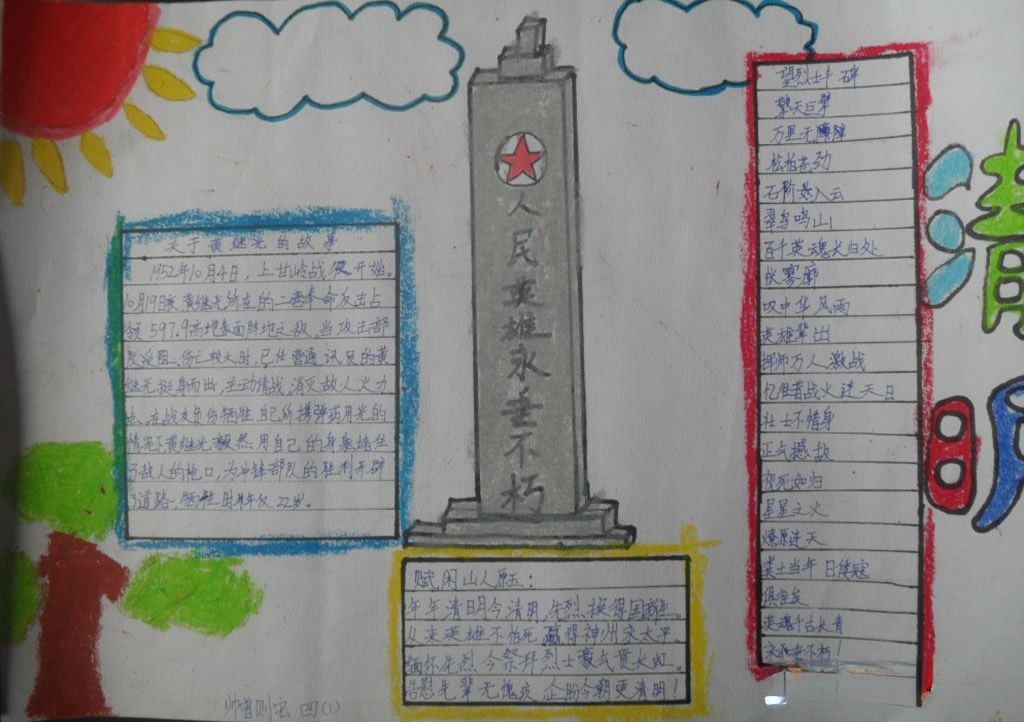 关于黄继光的故事
1952年10月14日，上甘岭战役开始。
10月19日夜黄继光所在的二营奉命反击占
领597.9高地表面阵地之敌。当攻击部
队受阻、伤亡较大时，已任营通讯员的黄
继光挺身而出，主动请战，消灭敌人火力
点、在战友负伤牺牲自己所携弹药用光的
情况下，黄继光毅然用自己的身躯堵住
了敌人的枪口，为冲锋部队的胜利开辟
了道路，牺牲时年仅22岁。
人民英雄永垂不朽
赋闲山人原玉：
年年清明今清明，先烈换得国新生。
从来英雄不怕死 赢得神州永太平。
缅怀先烈今祭拜烈士豪气贯长虹。
告慰先辈无愧疚 企盼今朝更清明！
望烈士丰碑
擎天巨擘
万里无障
松柏苍劲
石阶入云
翠鸟鸣山
百千英魂长归处
雾廓
叹中华风雨
英雄辈出
挥师万人激战
忆往昔战火连天日
壮士不惜身
正气撼敌
视死如归
星星之火
燎原连天
当年
俱往矣
英魂千古长青
永垂不朽！
清
明
四(1)